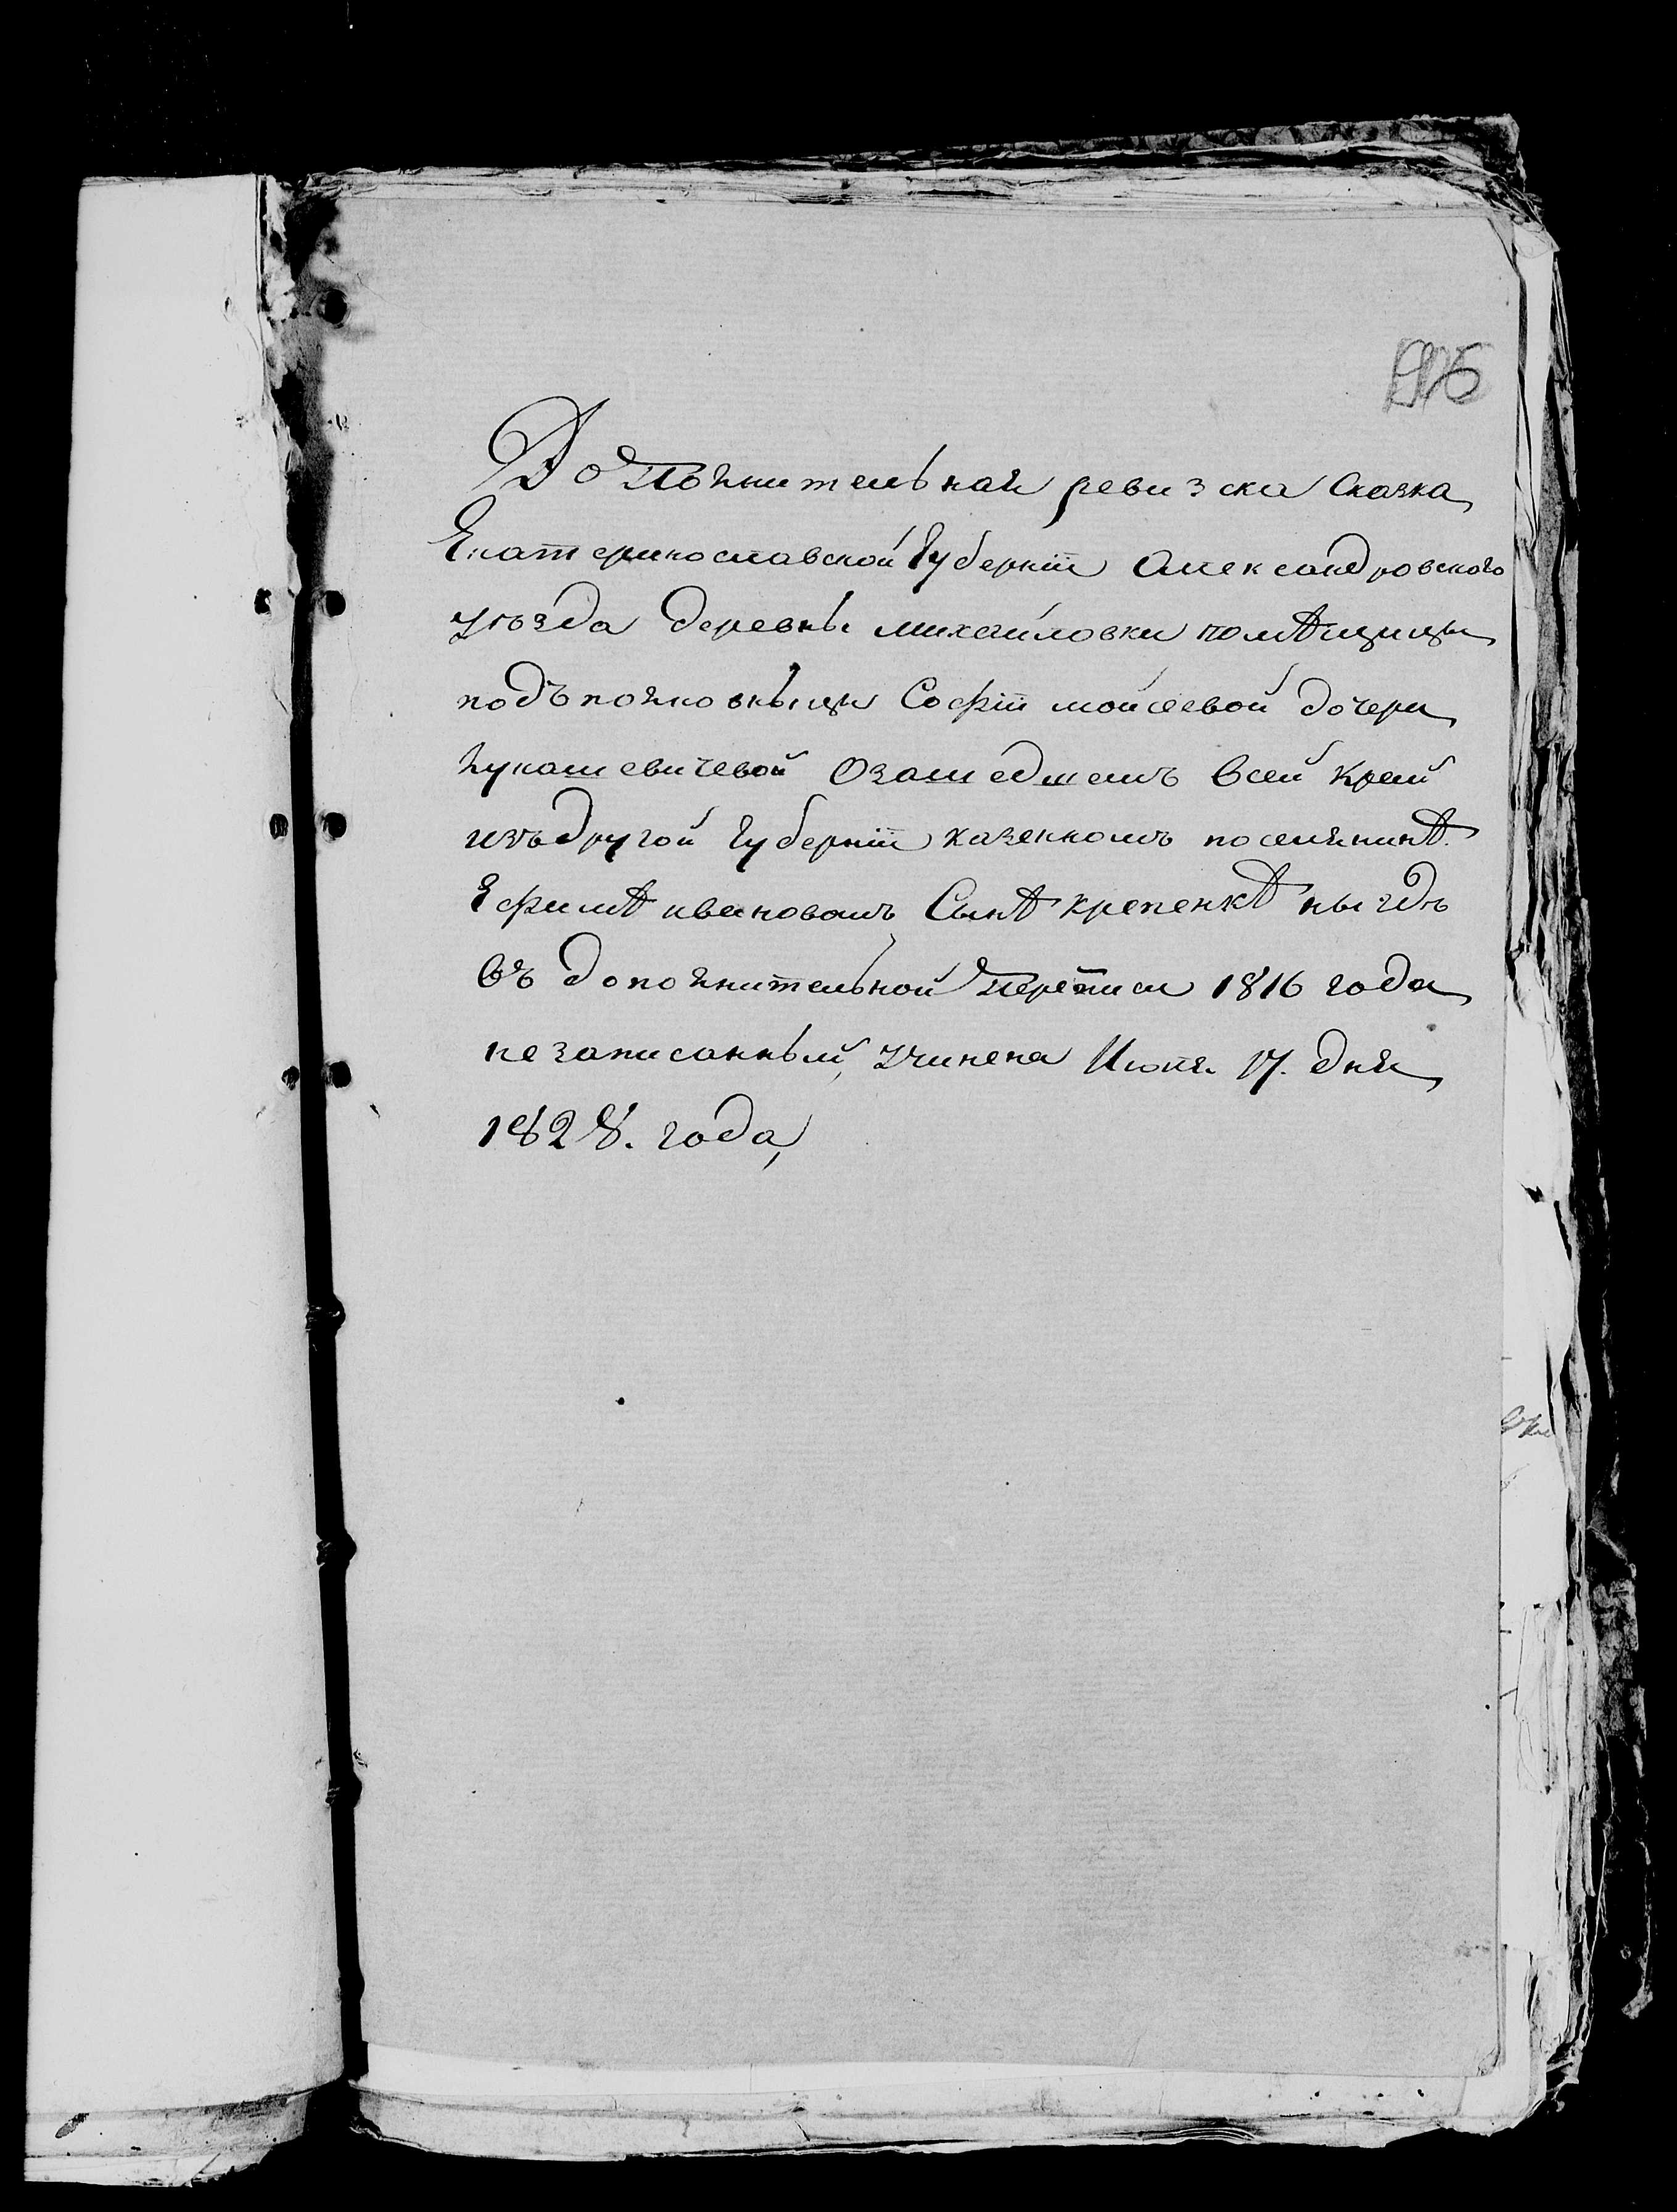 Дополнительная ревизска Сказка
Екатеринославской Губерніи Александровского
уѣзда деревны михайловки помѣщицы
подъполковныцы Софіи мойсеевой дочери
лукашевичевой Озашедшемъ Всей край
изъдругой Губерніи казенномъ поселянинѣ.
Ефимѣ ивановомъ Сынѣ крепенкѣ ныгдѣ
Въ дополнительной переписи 1816 года
незаписанный, учинена Июня. 17. дня
1828. года,